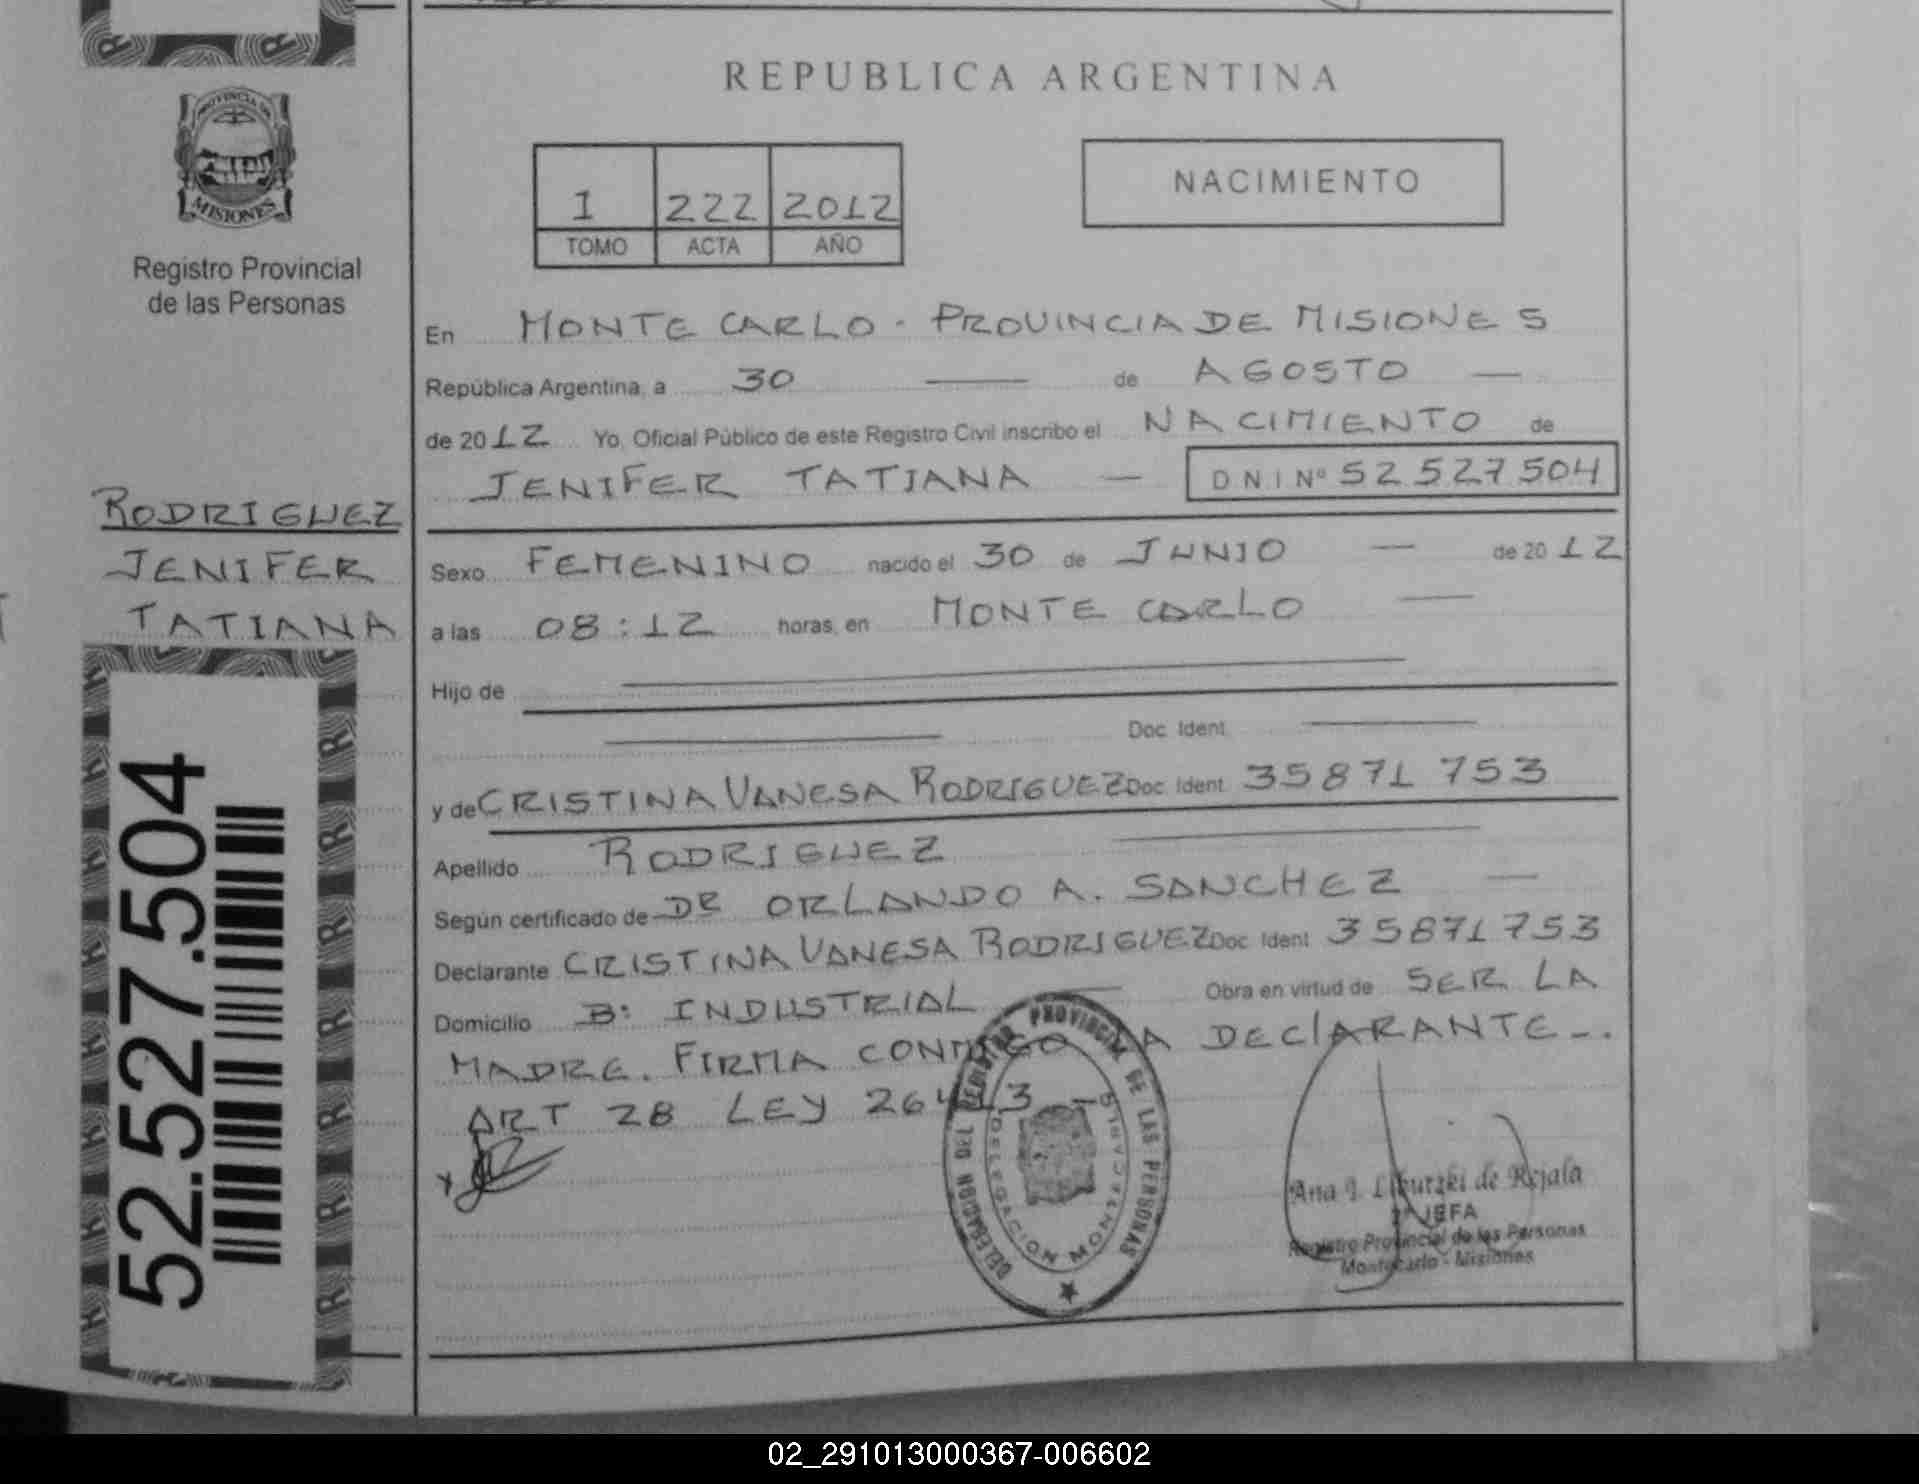 REPUBLICA ARGENTINA
PROVINCIA DE
MISIONES
Registro Provincial
de las Personas
1 222 2012
TOMO ACTA AÑO
NACIMIENTO
En MONTE CARLO - PROVINCIA DE MISIONES
República Argentina, a 30 — de AGOSTO —
de 2012 Yo, Oficial Público de este Registro Civil inscribo el NACIMIENTO de
JENIFER TATIANA — DNI Nº 52527504
RODRIGUEZ
JENIFER
TATIANA
Sexo FEMENINO nacido el 30 de JUNIO — de 2012
a las 08:12 horas, en MONTE CARLO —
Hijo de
Doc. Ident.
y de CRISTINA VANESA RODRIGUEZ Doc. Ident. 35871753
Apellido RODRIGUEZ
Según certificado de DR ORLANDO A. SANCHEZ —
Declarante CRISTINA VANESA RODRIGUEZ Doc. Ident. 35871753
Domicilio B: INDUSTRIAL — Obra en virtud de SER LA
MADRE. FIRMA CONMIGO LA DECLARANTE-.
ART 28 LEY 26413 -
52.527.504
DELEGACION DEL REGISTRO PROVINCIAL DE LAS PERSONAS
DELEGACION MONTECARLO
Ana J. de Rejala
2ª JEFA
Registro Provincial de las Personas
Montecarlo - Misiones
02_291013000367-006602